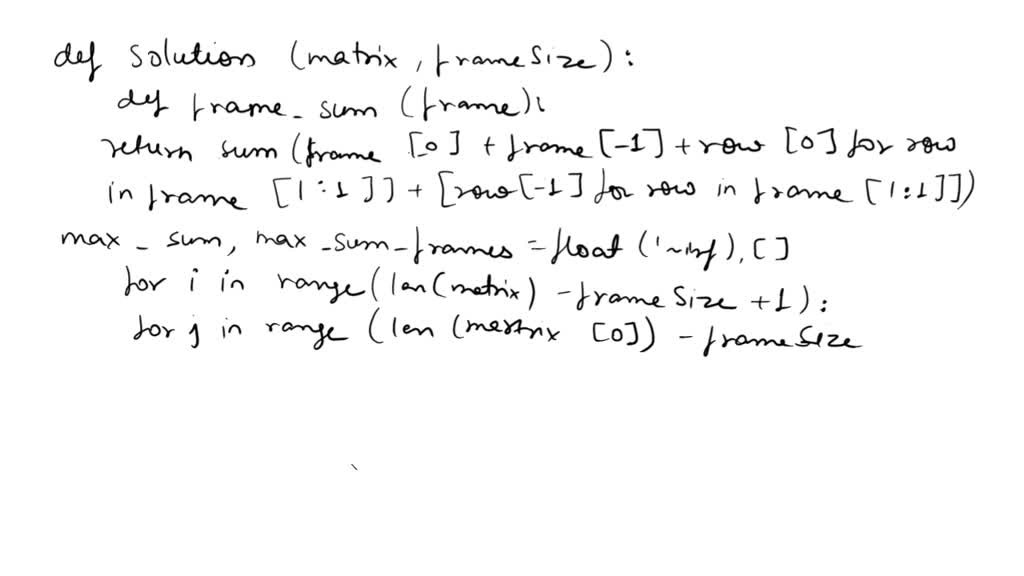 def solution (matrix, frameSize):
def frame_sum (frame):
return sum (frame [0] + frame [-1] + row [0] for row
in frame [1:1]] + [row[-1] for row in frame [1:1]])
max_sum, max_sum_frames = float ('-inf'), []
for i in range (len(matrix) - frameSize + 1):
for j in range (len (matrix [0]) - frameSize